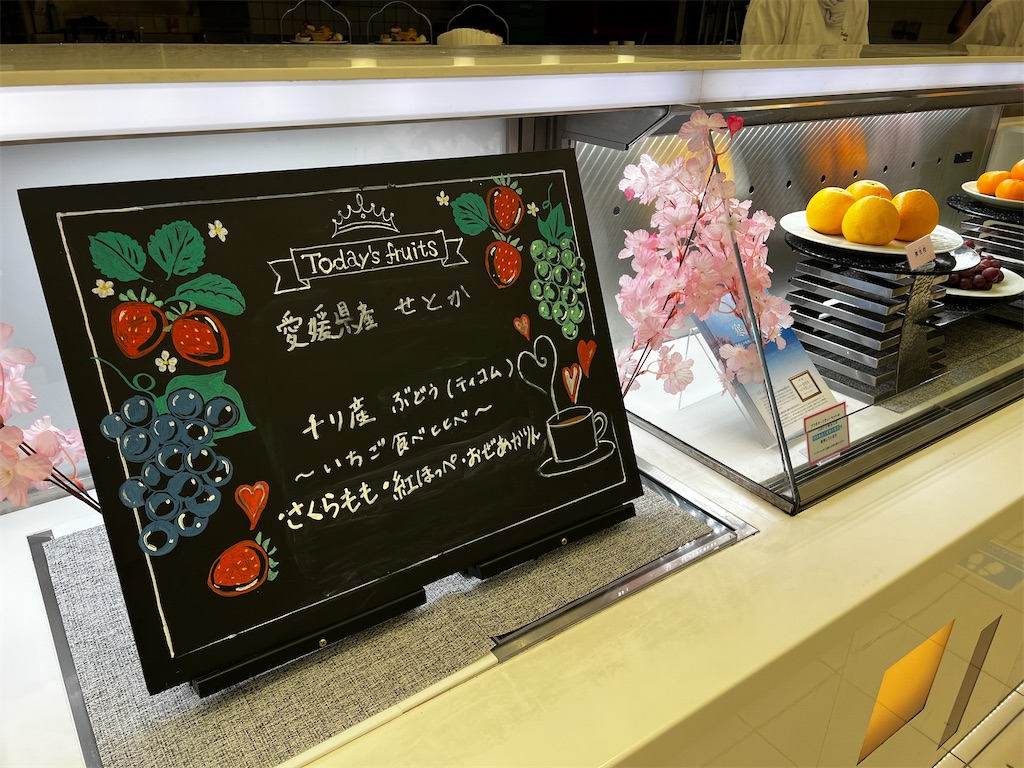 Today's fruits
愛媛県産 せとか
チリ産 ぶどう(ティコム)
～いちご食べ比べ～
・さくらもも・紅ほっぺ・おぜあかりん